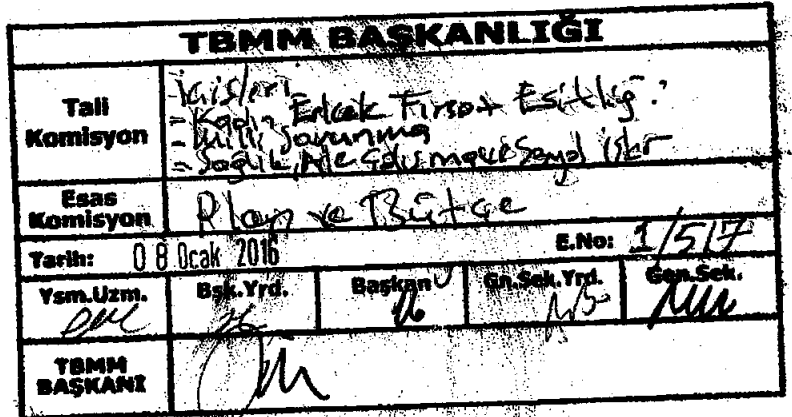 TBMM BAŞKANLIĞI
Tali Komisyon
İçişleri
- Kadın Erkek Fırsat Eşitliği
- Milli Savunma
- Sağlık, Aile Çalışma ve Sosyal İşler
Esas Komisyon
Plan ve Bütçe
Tarih: 08 Ocak 2016 E.No: 1/517
Ysm.Uzm. Bşk.Yrd. Başkan Gn.Sek.Yrd. Gen.Sek.
TBMM BAŞKANI